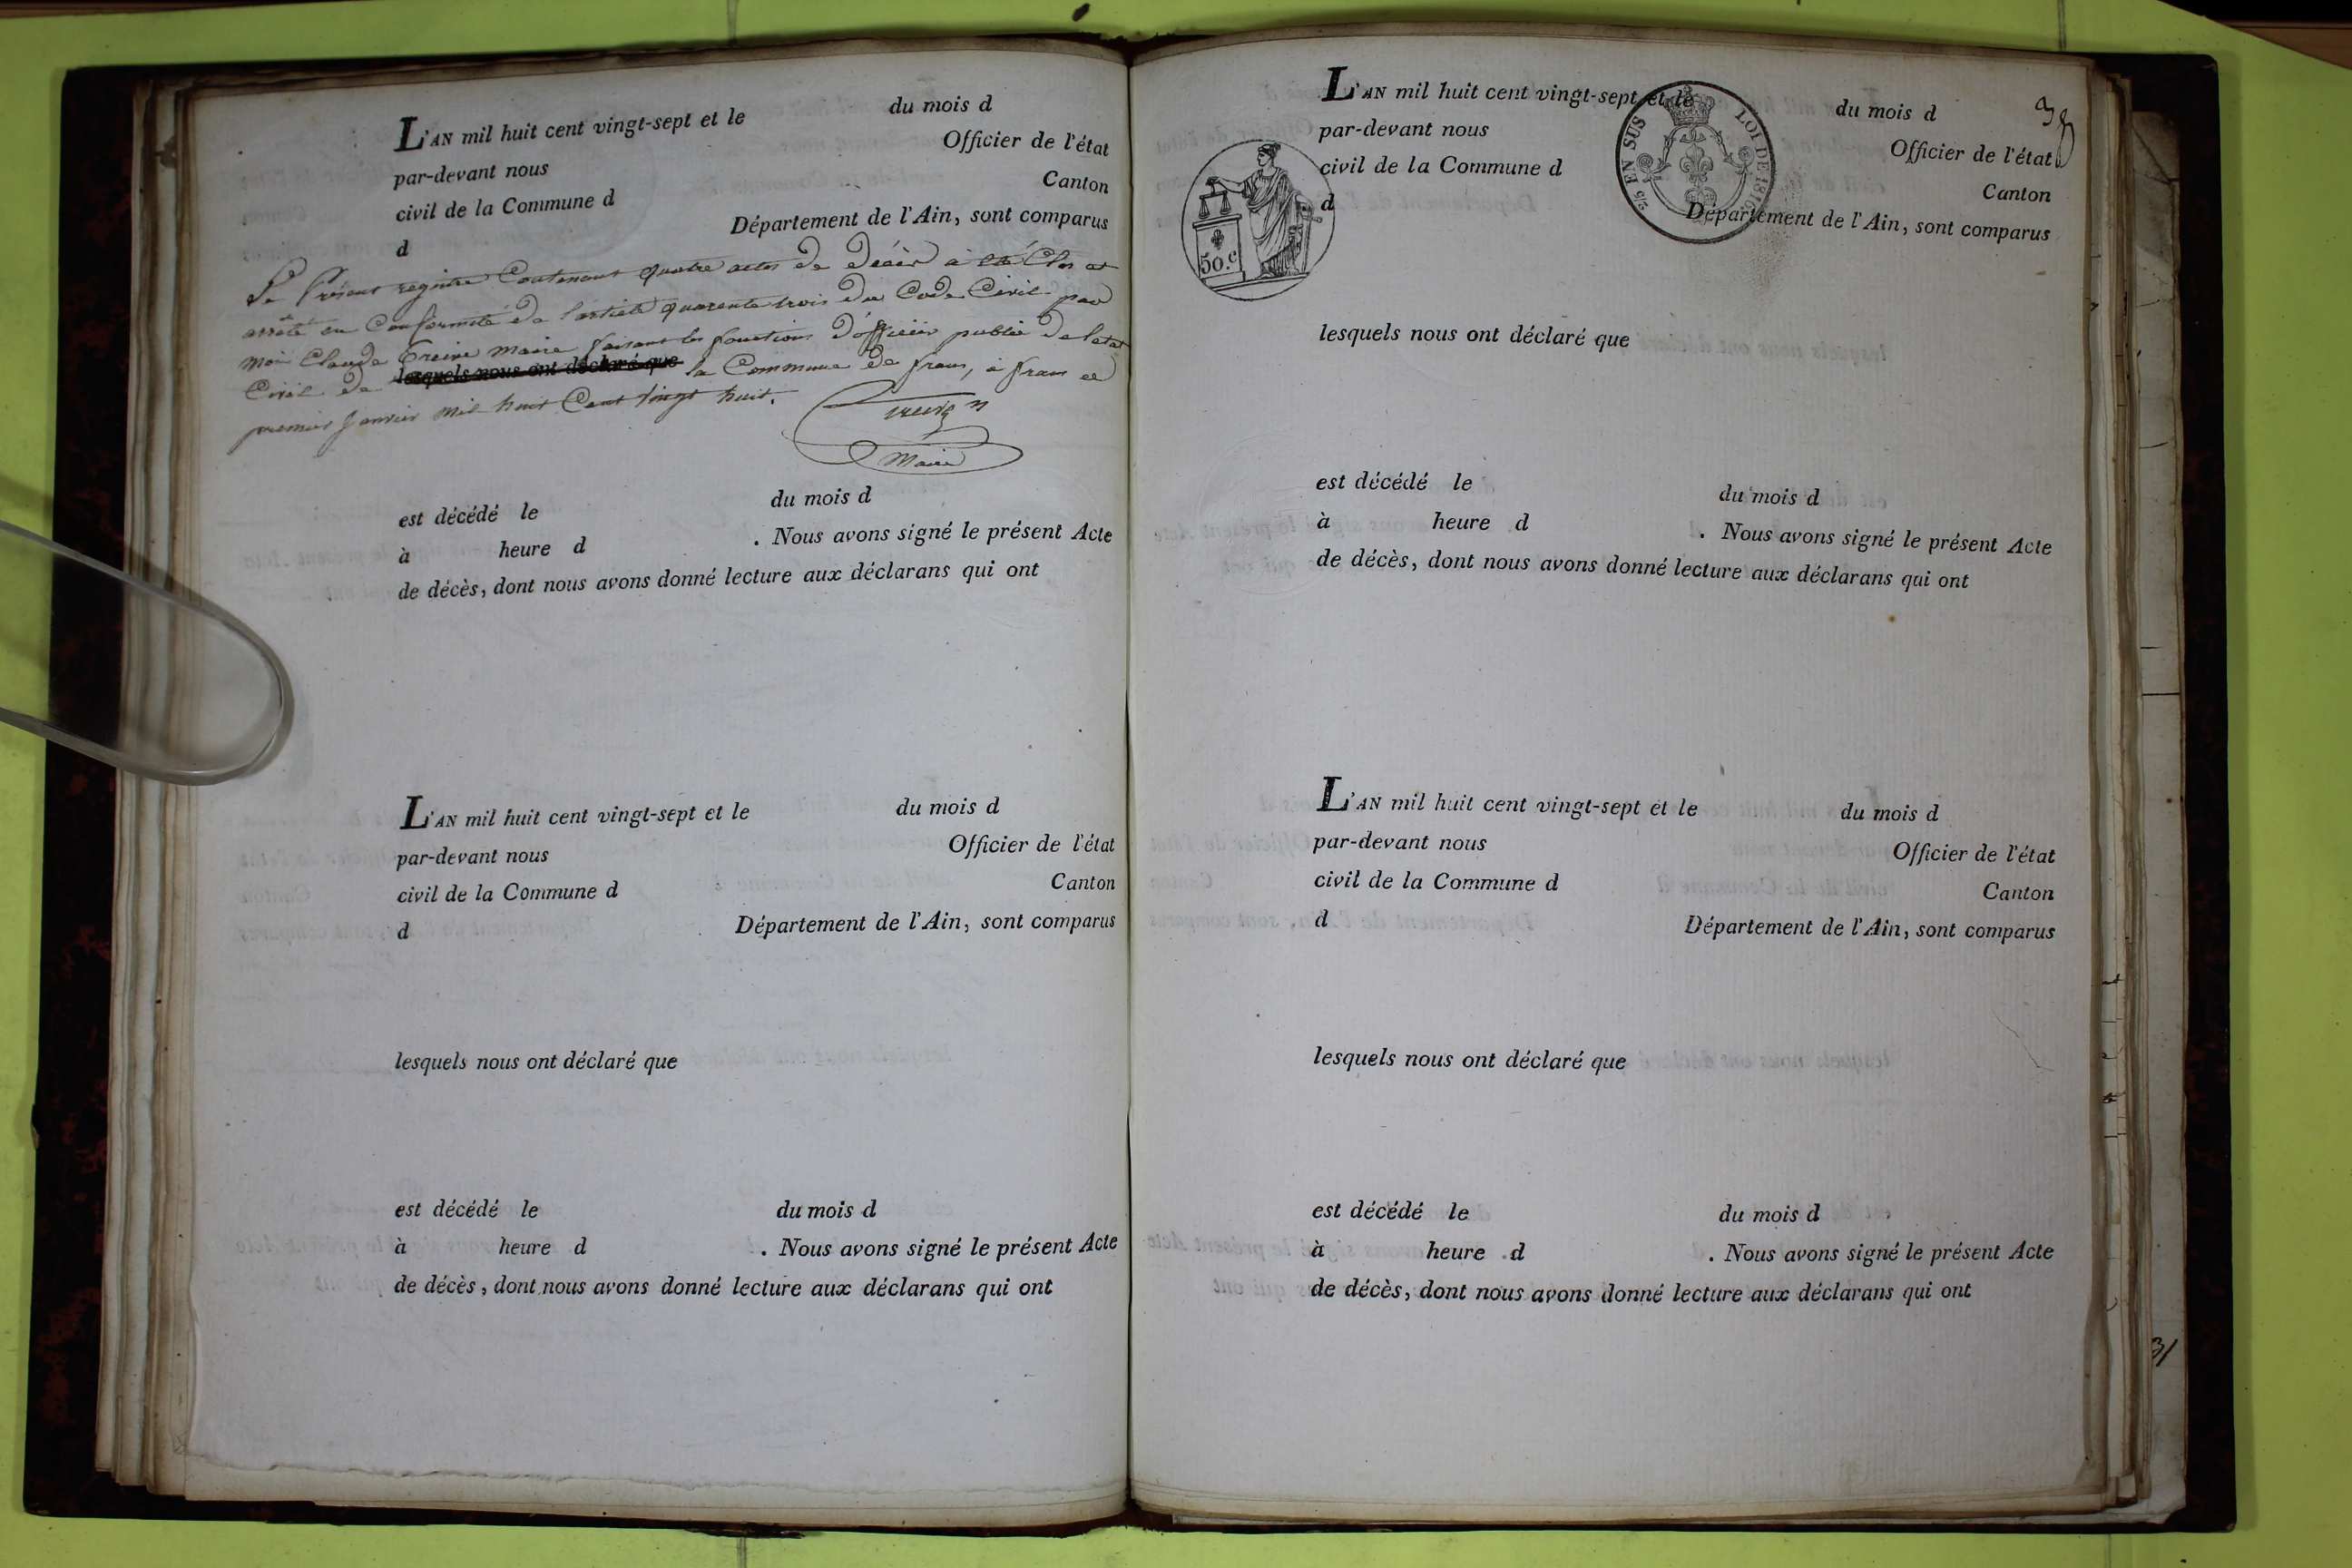 L'AN mil huit cent vingt-sept et le du mois d
par-devant nous Officier de l'état
civil de la Commune d Canton
d Département de l'Ain, sont comparus
Le Présent registre Contenant quatre actes de décès a été Clos et
arrêté en Conformité de l'article quarente trois du Code Civil par
moi Claude maire faisant les fonctions d'officier public de l'etat
Civil de lesquels nous ont déclaré que la Commune de frans, à frans le
premier Janvier mil huit Cent vingt huit.
Maire
est décédé le du mois d
à heure d . Nous avons signé le présent Acte
de décès, dont nous avons donné lecture aux déclarans qui ont
L'AN mil huit cent vingt-sept et le du mois d
par-devant nous Officier de l'état
civil de la Commune d Canton
d Département de l'Ain, sont comparus
lesquels nous ont déclaré que
est décédé le du mois d
à heure d . Nous avons signé le présent Acte
de décès, dont nous avons donné lecture aux déclarans qui ont
38
L'AN mil huit cent vingt-sept et le du mois d
par-devant nous Officier de l'état
civil de la Commune d Canton
d Département de l'Ain, sont comparus
EN SUS LOI DE 1816
50.c
lesquels nous ont déclaré que
est décédé le du mois d
à heure d . Nous avons signé le présent Acte
de décès, dont nous avons donné lecture aux déclarans qui ont
L'AN mil huit cent vingt-sept et le du mois d
par-devant nous Officier de l'état
civil de la Commune d Canton
d Département de l'Ain, sont comparus
lesquels nous ont déclaré que
est décédé le du mois d
à heure d . Nous avons signé le présent Acte
de décès, dont nous avons donné lecture aux déclarans qui ont
31